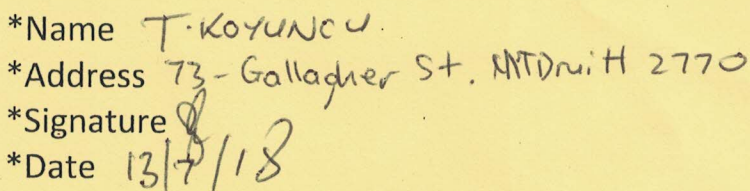 *Name T. KOYUNCU.
*Address 73 - Gallagher St. MTDruitt 2770
*Signature
*Date 13/7/18